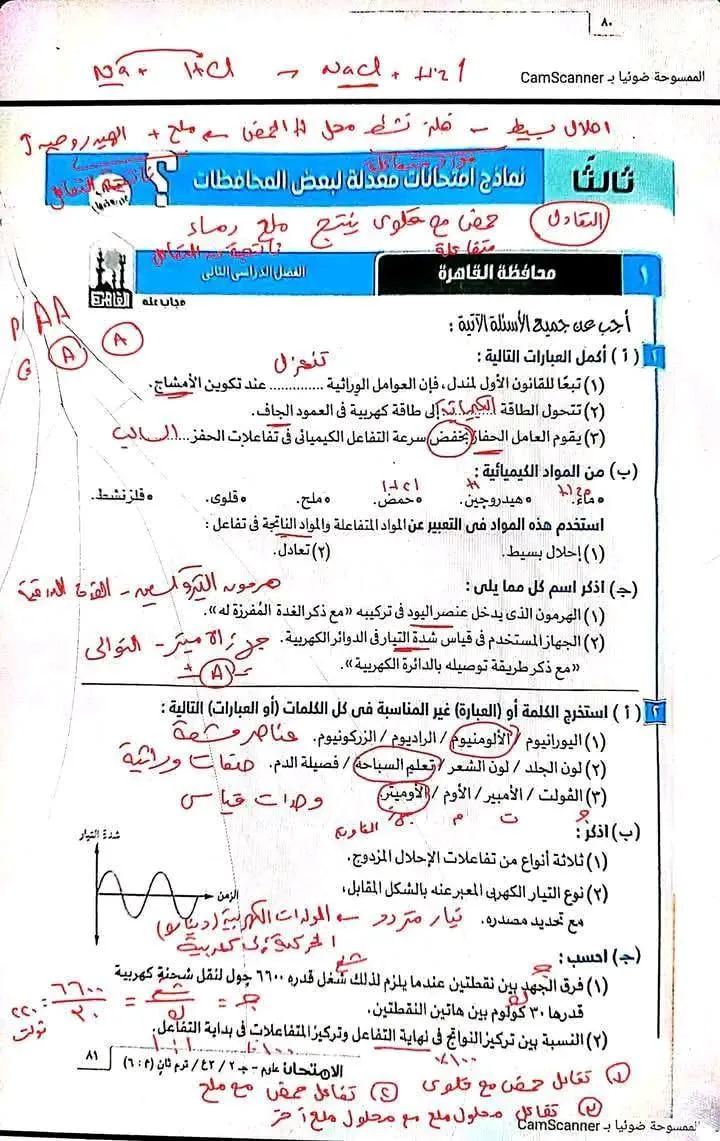 ٨٠
Na + HCl → NaCl + H2↑
الممسوحة ضوئيا بـ CamScanner
احلال بسيط ← فلز نشط محل H الحمض ← ملح + الهيدروجين
ثالثًا
نماذج امتحانات معدلة لبعض المحافظات
التعادل
حمض مع قلوى ينتج ملح و ماء
متفاعلة
١
محافظة القاهرة
الفصل الدراسى الثانى
القاهرة
مجاب عنه
أجب عن جميع الأسئلة الآتية :
A
A
١ ( أ ) أكمل العبارات التالية :
تنعزل
(١) تبعًا للقانون الأول لمندل، فإن العوامل الوراثية ............. عند تكوين الأمشاج.
(٢) تتحول الطاقة الكيميائية إلى طاقة كهربية فى العمود الجاف.
(٣) يقوم العامل الحفاز بخفض سرعة التفاعل الكيميائى فى تفاعلات الحفز .... السالب
(ب) من المواد الكيميائية :
• ماء. • هيدروجين. • حمض. • ملح. • قلوى. • فلز نشط.
استخدم هذه المواد فى التعبير عن المواد المتفاعلة والمواد الناتجة فى تفاعل :
(١) إحلال بسيط. (٢) تعادل.
(جـ) اذكر اسم كل مما يلى :
هرمون الثيروكسين - الغدة الدرقية
(١) الهرمون الذى يدخل عنصر اليود فى تركيبه «مع ذكر الغدة المُفرزة له».
(٢) الجهاز المستخدم فى قياس شدة التيار فى الدوائر الكهربية.
جهاز الاميتر - التوالى
«مع ذكر طريقة توصيله بالدائرة الكهربية».
A
٢ ( أ ) استخرج الكلمة أو (العبارة) غير المناسبة فى كل الكلمات (أو العبارات) التالية :
(١) اليورانيوم / الألومنيوم / الراديوم / الزركونيوم. عناصر مشعة
(٢) لون الجلد / لون الشعر / تعلم السباحة / فصيلة الدم. صفات وراثية
(٣) الڤولت / الأمبير / الأوم / الأوميتر. وحدات قياس
جـ ت م
(ب) اذكر :
شدة التيار
(١) ثلاثة أنواع من تفاعلات الإحلال المزدوج.
(٢) نوع التيار الكهربى المعبر عنه بالشكل المقابل،
الزمن
مع تحديد مصدره. تيار متردد ← المولدات الكهربية (دينامو)
الحركية إلى كهربية
(جـ) احسب :
(١) فرق الجهد بين نقطتين عندما يلزم لذلك شغل قدره ٦٦٠٠ چول لنقل شحنة كهربية
قدرها ٣٠ كولوم بين هاتين النقطتين.
جـ = شغ / ك = ٦٦٠٠ / ٣٠ = ٢٢٠ ڤولت
(٢) النسبة بين تركيز النواتج فى نهاية التفاعل وتركيز المتفاعلات فى بداية التفاعل.
١ : ١ ٪١٠٠ ٪١٠٠
الامتحان علوم - جـ ٢ / ٢ع / ترم ثان (م : ٦) ٨١
(١) تفاعل حمض مع قلوى (٢) تفاعل حمض مع ملح
(٣) تفاعل محلول ملح مع محلول ملح آخر
الممسوحة ضوئيا بـ CamScanner